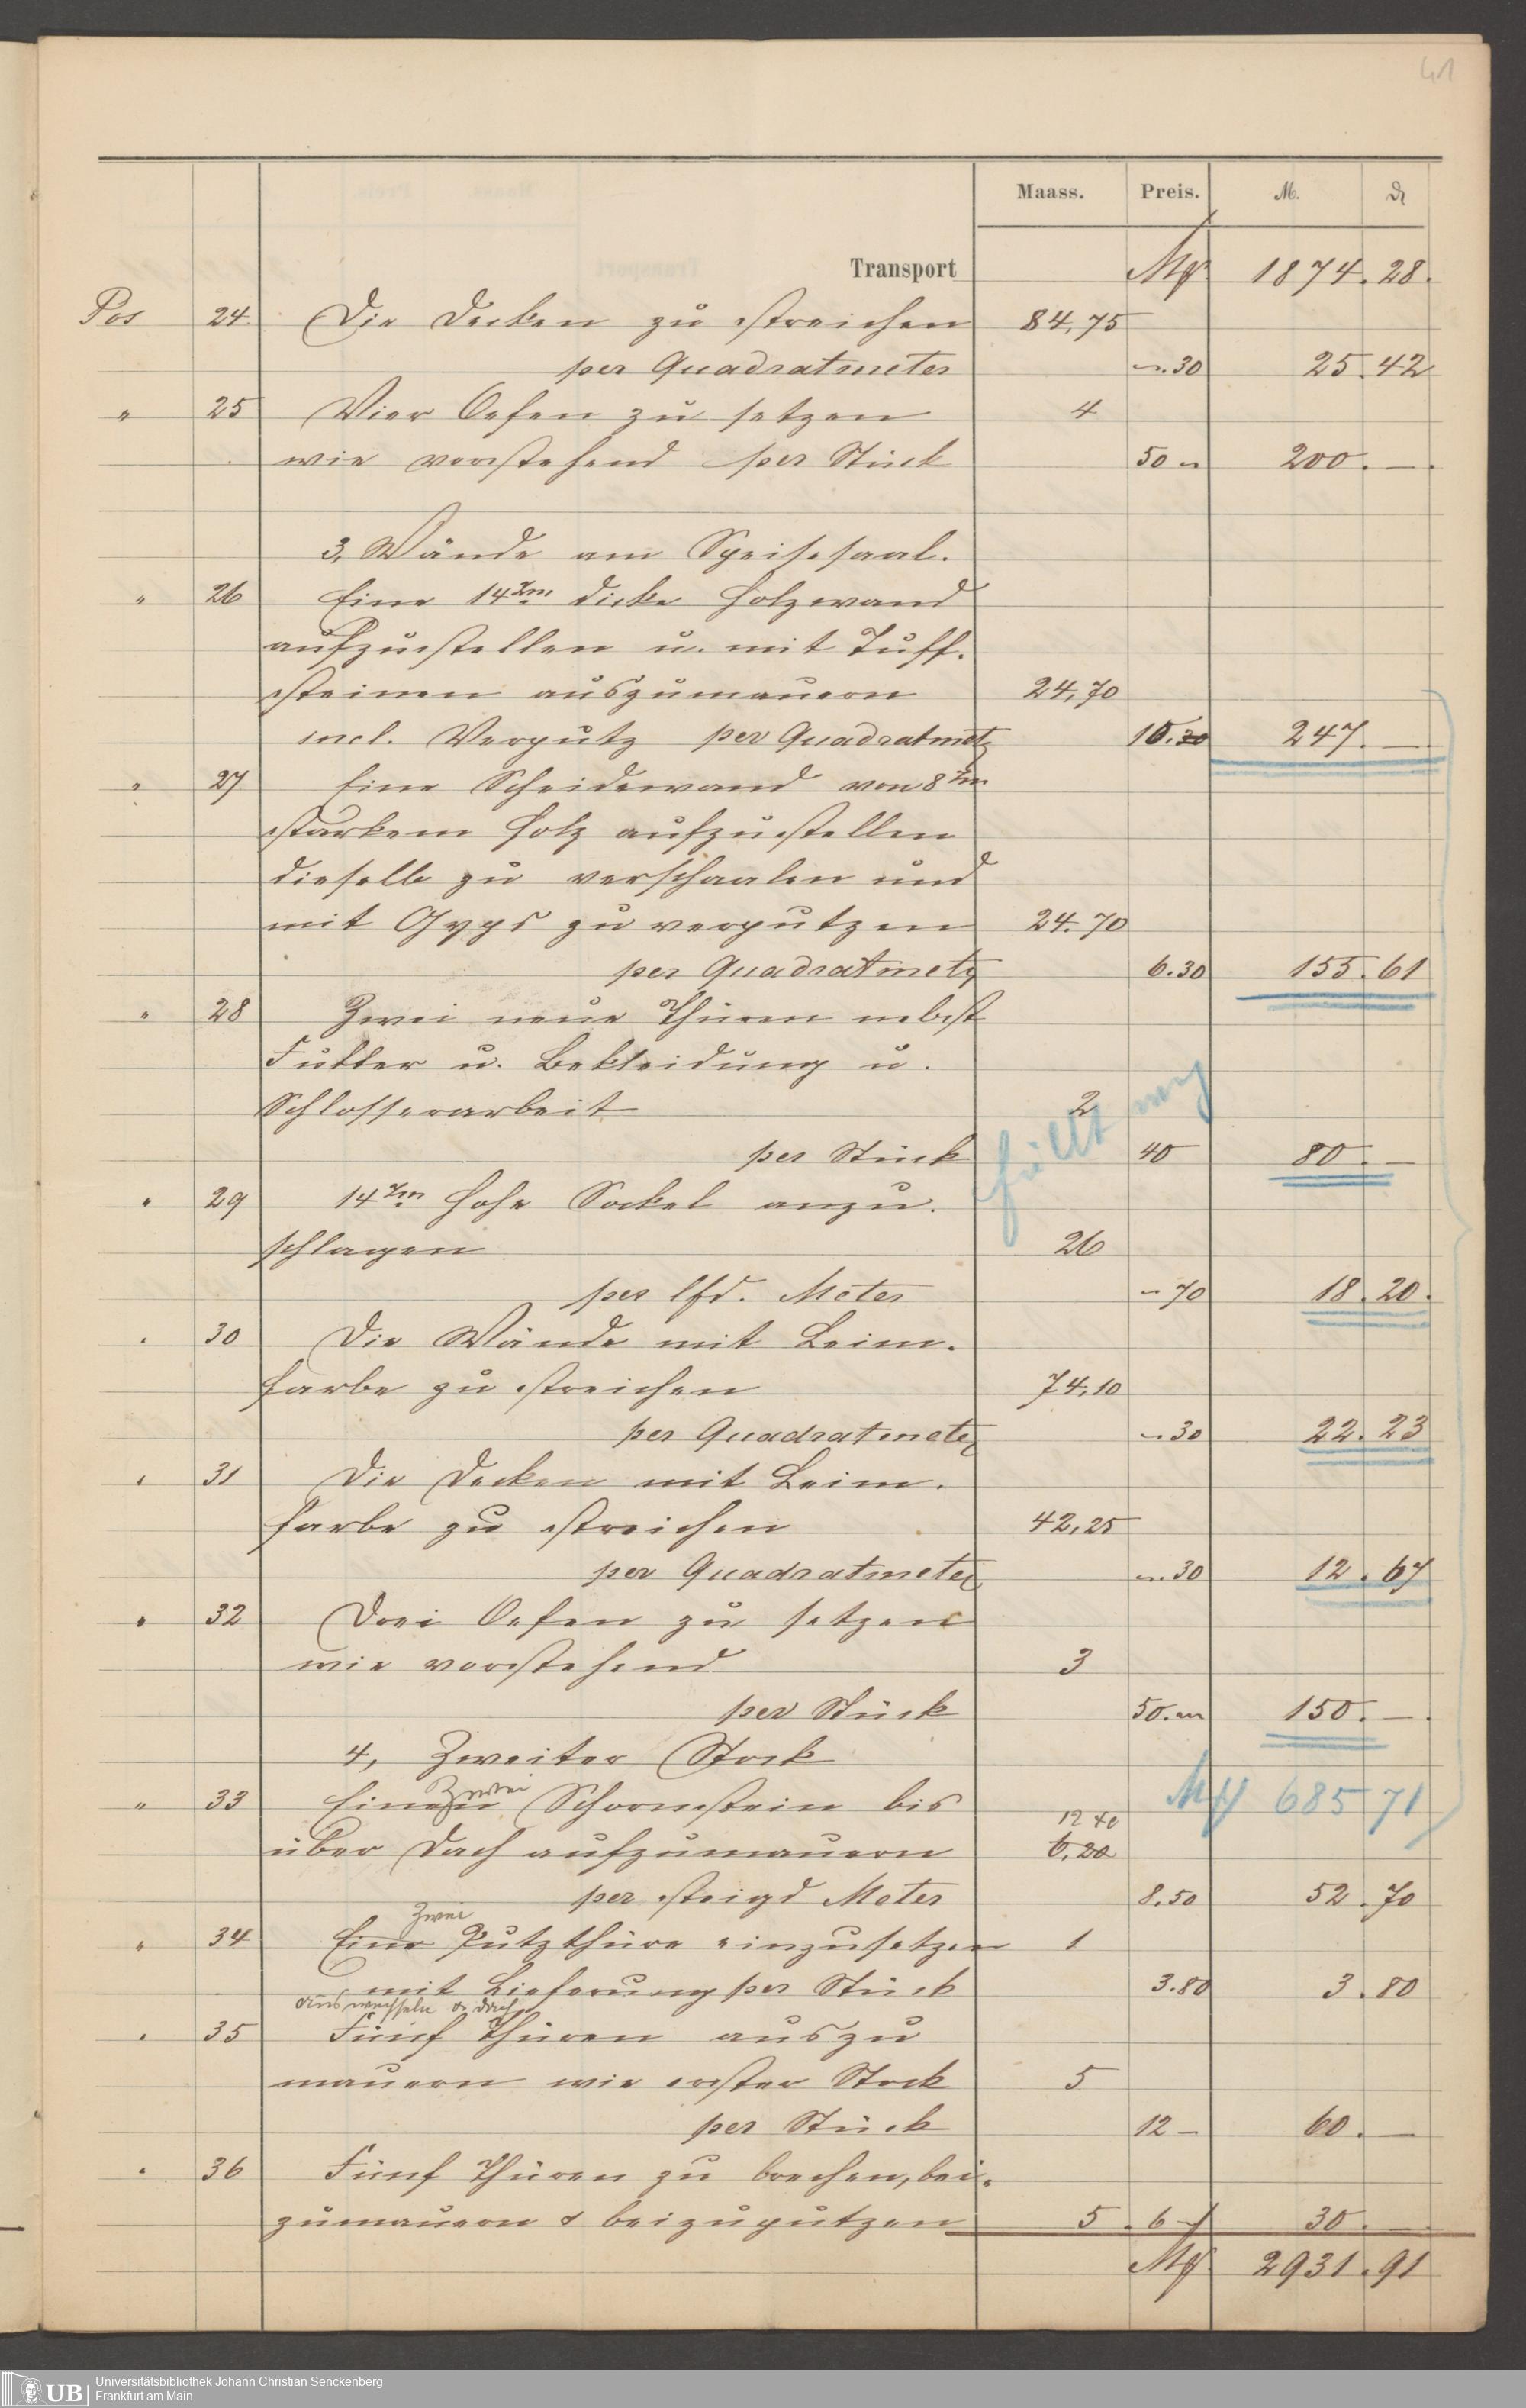 41
Maass. Preis. M. ₰
Transport Mk 1874.28.
Pos 24 Die Decken zu streichen 84,75
per Quadratmeter –.30 25.42
" 25 Vier Oefen zu setzen 4
wie vorstehend per Stück 50 – 200.—.
3, Wände am Speisesaal.
" 26 Eine 14 cm dicke Holzwand
aufzustellen u. mit Tuff-
steinen auszumauern 24,70
incl. Verputz per Quadratmet 10.30 247.—
" 27 Eine Scheidewand von 8 cm
starkem Holz aufzustellen
dieselbe zu verschaalen und
mit Gyps zu verputzen 24.70
per Quadratmetr 6.30 155.61
" 28 Zwei neue Thüren nebst
Futter u. Bekleidung u.
Schlosserarbeit 2
fällt weg
per Stück 40 80.—
" 29 14 cm hohe Sockel anzu-
schlagen 26
per lfd. Meter – 70 18.20.
" 30 Die Wände mit Leim-
farbe zu streichen 74,10
per Quadratmeter –.30 22.23
" 31 Die Decken mit Leim-
farbe zu streichen 42,25
per Quadratmeter –.30 12.67
" 32 Drei Oefen zu setzen
wie vorstehend 3
per Stück 50.– 150.—.
4, Zweiter Stock
Zwei Mk 685 71
" 33 Einen Schornstein bis
12 40
über Dach aufzumauern 6.20
per steigd Meter 8.50 52.70
Zwei
" 34 Eine Putzthüre einzusetzen 1
mit Lieferung per Stück 3.80 3.80
auswechseln
" 35 Fünf Thüren auszu
mauern wie erster Stock 5
per Stück 12 – 60.—
" 36 Fünf Thüren zu brechen, bei-
zumauern & beizuputzen 5. 6 – 30.—
Mk 2931.91
UB Universitätsbibliothek Johann Christian Senckenberg
Frankfurt am Main